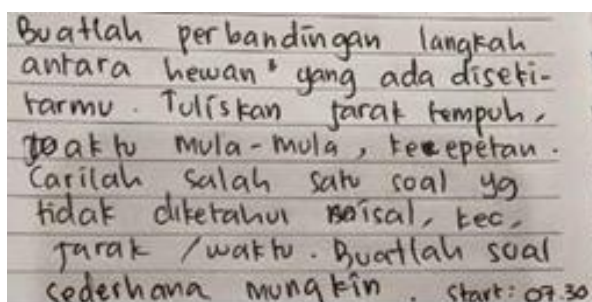 Buatlah perbandingan langkah
antara hewan" yang ada diseki-
tarmu. Tuliskan jarak tempuh,
waktu mula-mula, kecepetan.
Carilah salah satu soal yg
tidak diketahui misal, kec,
jarak /waktu. Buatlah soal
sederhana mungkin. Start: 07.30